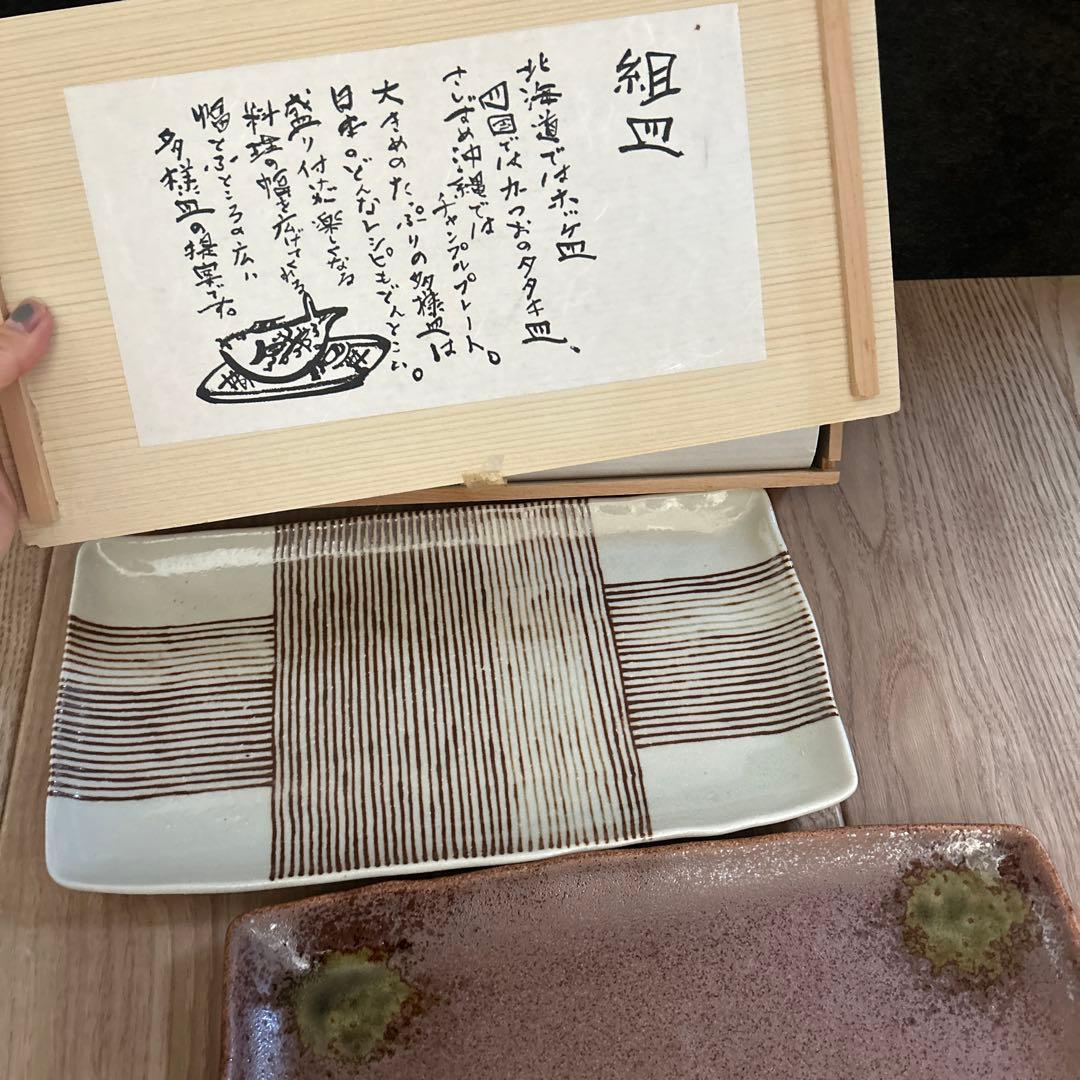 組皿
北海道ではホッケ皿
四国ではかつおのタタキ皿、
さしずめ沖縄では
チャンプルプレート。
大きめのたっぷりの多様皿は
日本のどんなレシピもどんとこい。
盛り付けが楽しくなる
料理の幅を広げてくれる
幅とふところの広い
多様皿の提案です。